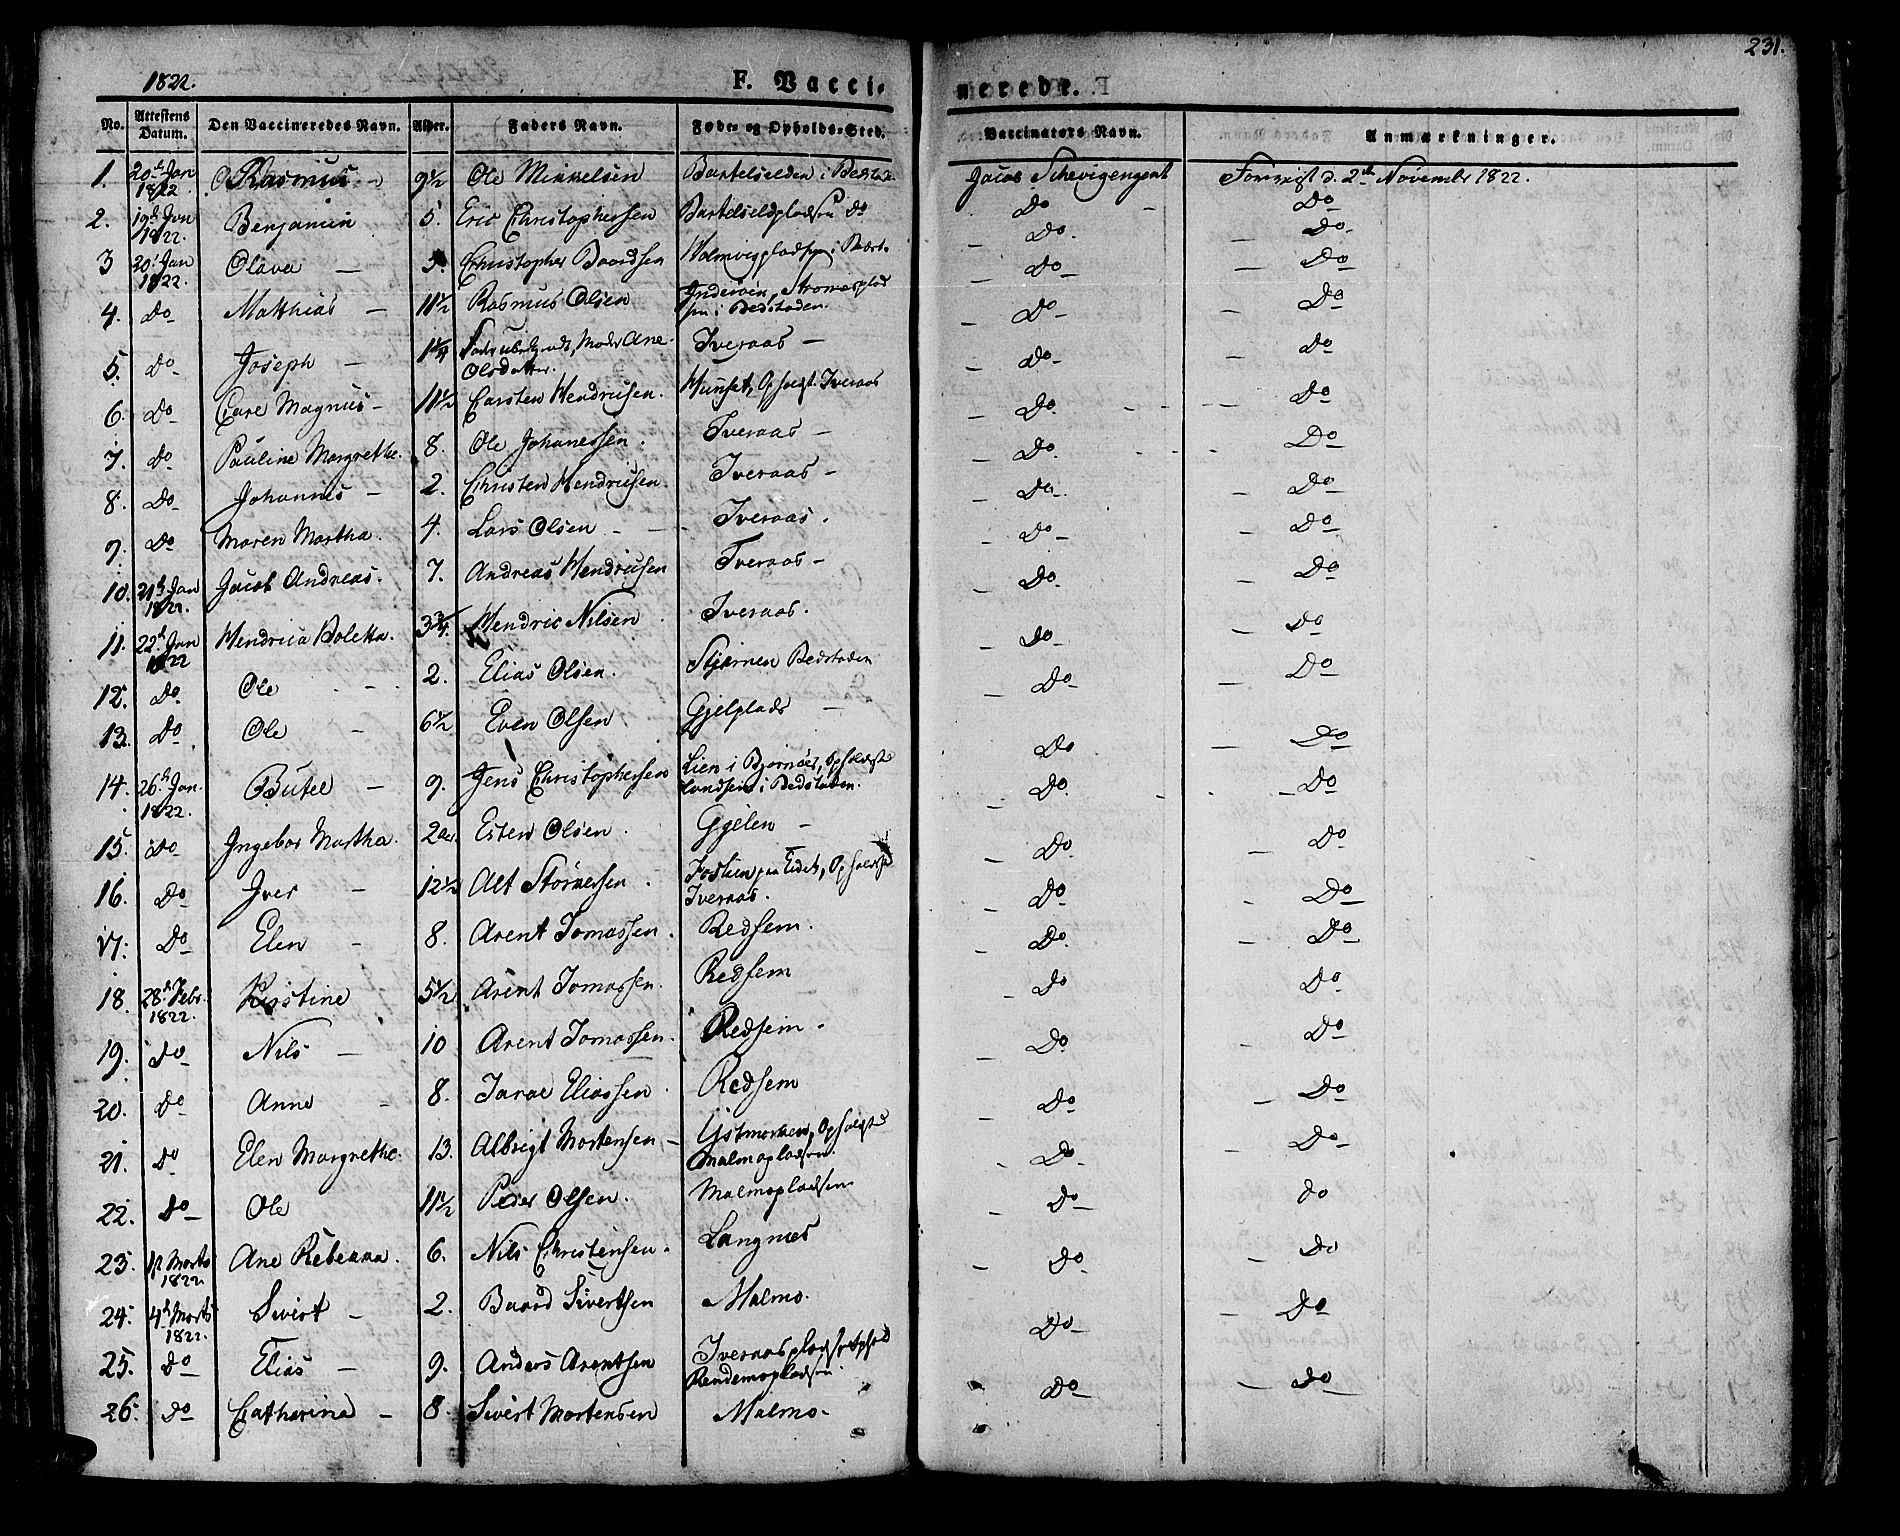 231.
1822. F. Vacci- nerede.
No. Attestens Datum. Den Vaccineredes Navn. Alder. Faders Navn. Føde- og Opholds-Sted. Vaccinators Navn. Anmærkninger.
1. 20de Jan 1822. Rasmus 9½ Ole Mikkelsen i Jacob Forevist d. 2den November 1822.
2. 19de Jan 1822. Benjamin 5. Eric Christophersen do Do Do
3 20de Jan 1822. Olava 5. Christopher Baardsen Do. Do
4. Do Matthias 11½ Rasmus Olsen Inderøen, i Bedstaden. Do Do
5. Do Joseph 1¼ Moder Ane Olsdatter. Iveraas Do Do
6. Do Care Magnus 11½ Carsten Hendricsen. Iveraas Do Do
7. Do Pauline Margrethe. 8. Ole Johanessen. Iveraas Do Do
8. Do Johannes 2. Christen Hendricsen. Iveraas Do. Do
9. Do Maren Martha. 4. Lars Olsen Iveraas. Do Do
10. 21de Jan 1822. Jacob Andreas. 7. Andreas Hendricsen Iveraas Do Do
11. 22de Jan 1822 Hendrica Boletta. 3¾ Hendric Nilsen Iveraas. Do Do
12. Do Ole 2. Elias Olsen. Stjernen Bedstaden Do Do
13. Do Ole 6½ Even Olsen. Gjelplads Do Do
14. 26de Jan. 1822. Butel 9. Jens Christophersen Lien i Bjørnør, Opholdst i Bedstaden. Do Do
15. Do Ingebor Martha. 2 aar Esten Olsen. Gjelen Do Do
16. Do Iver 12½ Alt Storkersen. paa Eidet, Opholdst Iveraas. Do Do
17. Do Elen 8. Arent Tomassen. Redsem. Do. Do
18. 28de Febr. 1822. Kirstine 5½ Arent Tomassen. Redsem Do Do
19. Do Nils 10 Arent Tomassen. Redsem. Do Do
20. Do Anne 8. Eliassen. Redsem Do Do
21. Do Elen Margrethe. 13. Albrigt Mortensen Opholdst Malmopladsen. Do Do
22. Do Ole 11½ Peder Olsen. Malmopladsen Do Do
23. Marts 1822. Ane Rebecka. 6. Nils Christensen. Langnes Do Do
24. 4de Marts 1822. Sivert 2. Baard Sivertsen Malmo. Do Do
25. Do Elias 9. Anders Arentsen Rendemopladsen Do Do
26. Do Catharina 8. Sivert Mortensen Malmo.